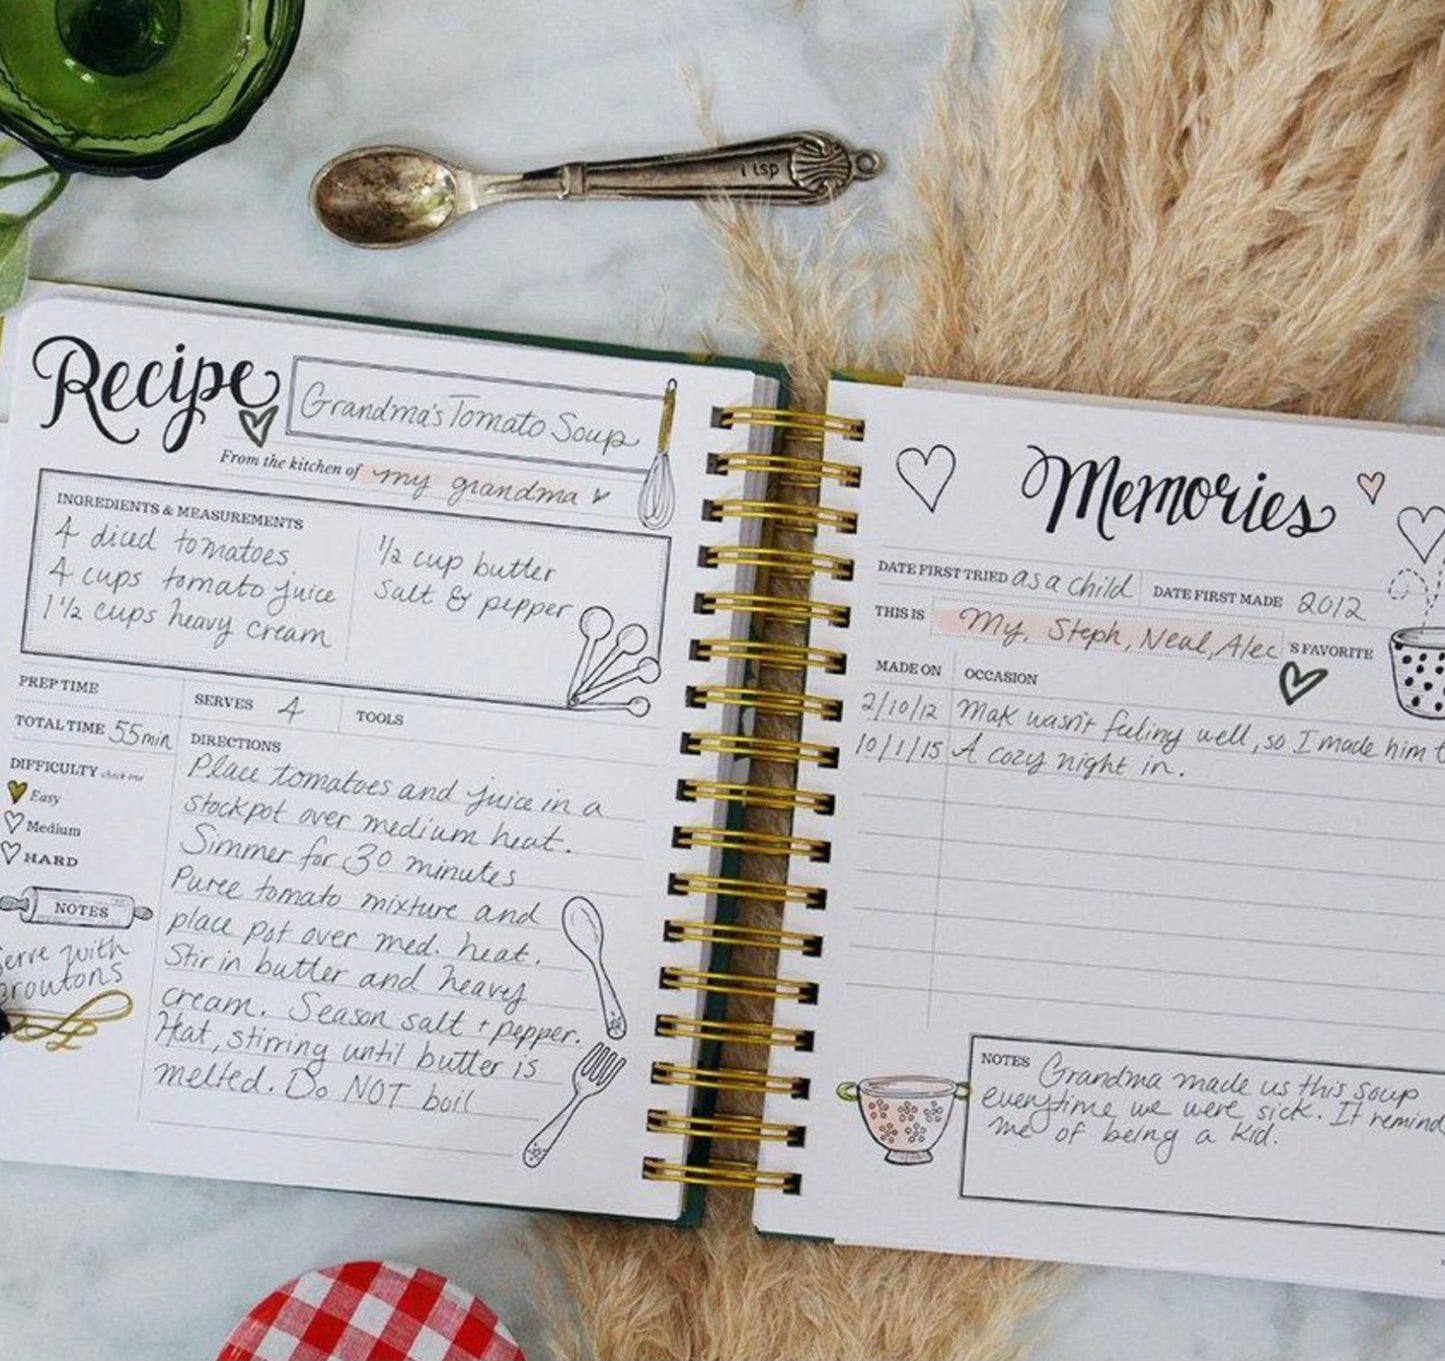 1 tsp
Recipe
Grandma's Tomato Soup
From the kitchen of my grandma
INGREDIENTS & MEASUREMENTS
4 diced tomatoes
4 cups tomato juice
1 1/2 cups heavy cream
1/2 cup butter
Salt & pepper
PREP TIME
SERVES 4
TOOLS
TOTAL TIME 55 min
DIFFICULTY check one
Easy
Medium
HARD
NOTES
serve with
croutons
DIRECTIONS
Place tomatoes and juice in a
stockpot over medium heat.
Simmer for 30 minutes
Puree tomato mixture and
place pot over med. heat.
Stir in butter and heavy
cream. Season salt + pepper.
Heat, stirring until butter is
melted. Do NOT boil
Memories
DATE FIRST TRIED as a child
DATE FIRST MADE 2012
THIS IS My, Steph, Neal, Alec 'S FAVORITE
MADE ON OCCASION
2/10/12 Mak wasn't feeling well, so I made him
10/1/15 A cozy night in.
NOTES Grandma made us this soup
everytime we were sick. It remind
me of being a kid.